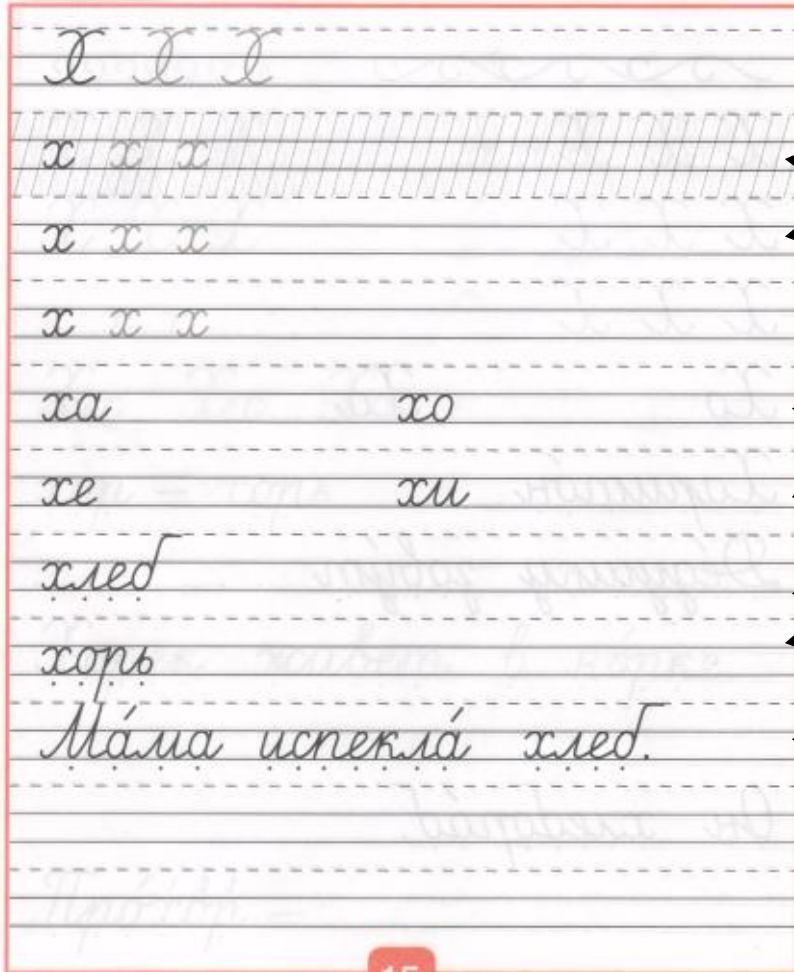 Х Х Х
х х х
х х х
х х х
ха хо
хе хи
хлеб
хорь
Ма́ма испекла́ хлеб.
15